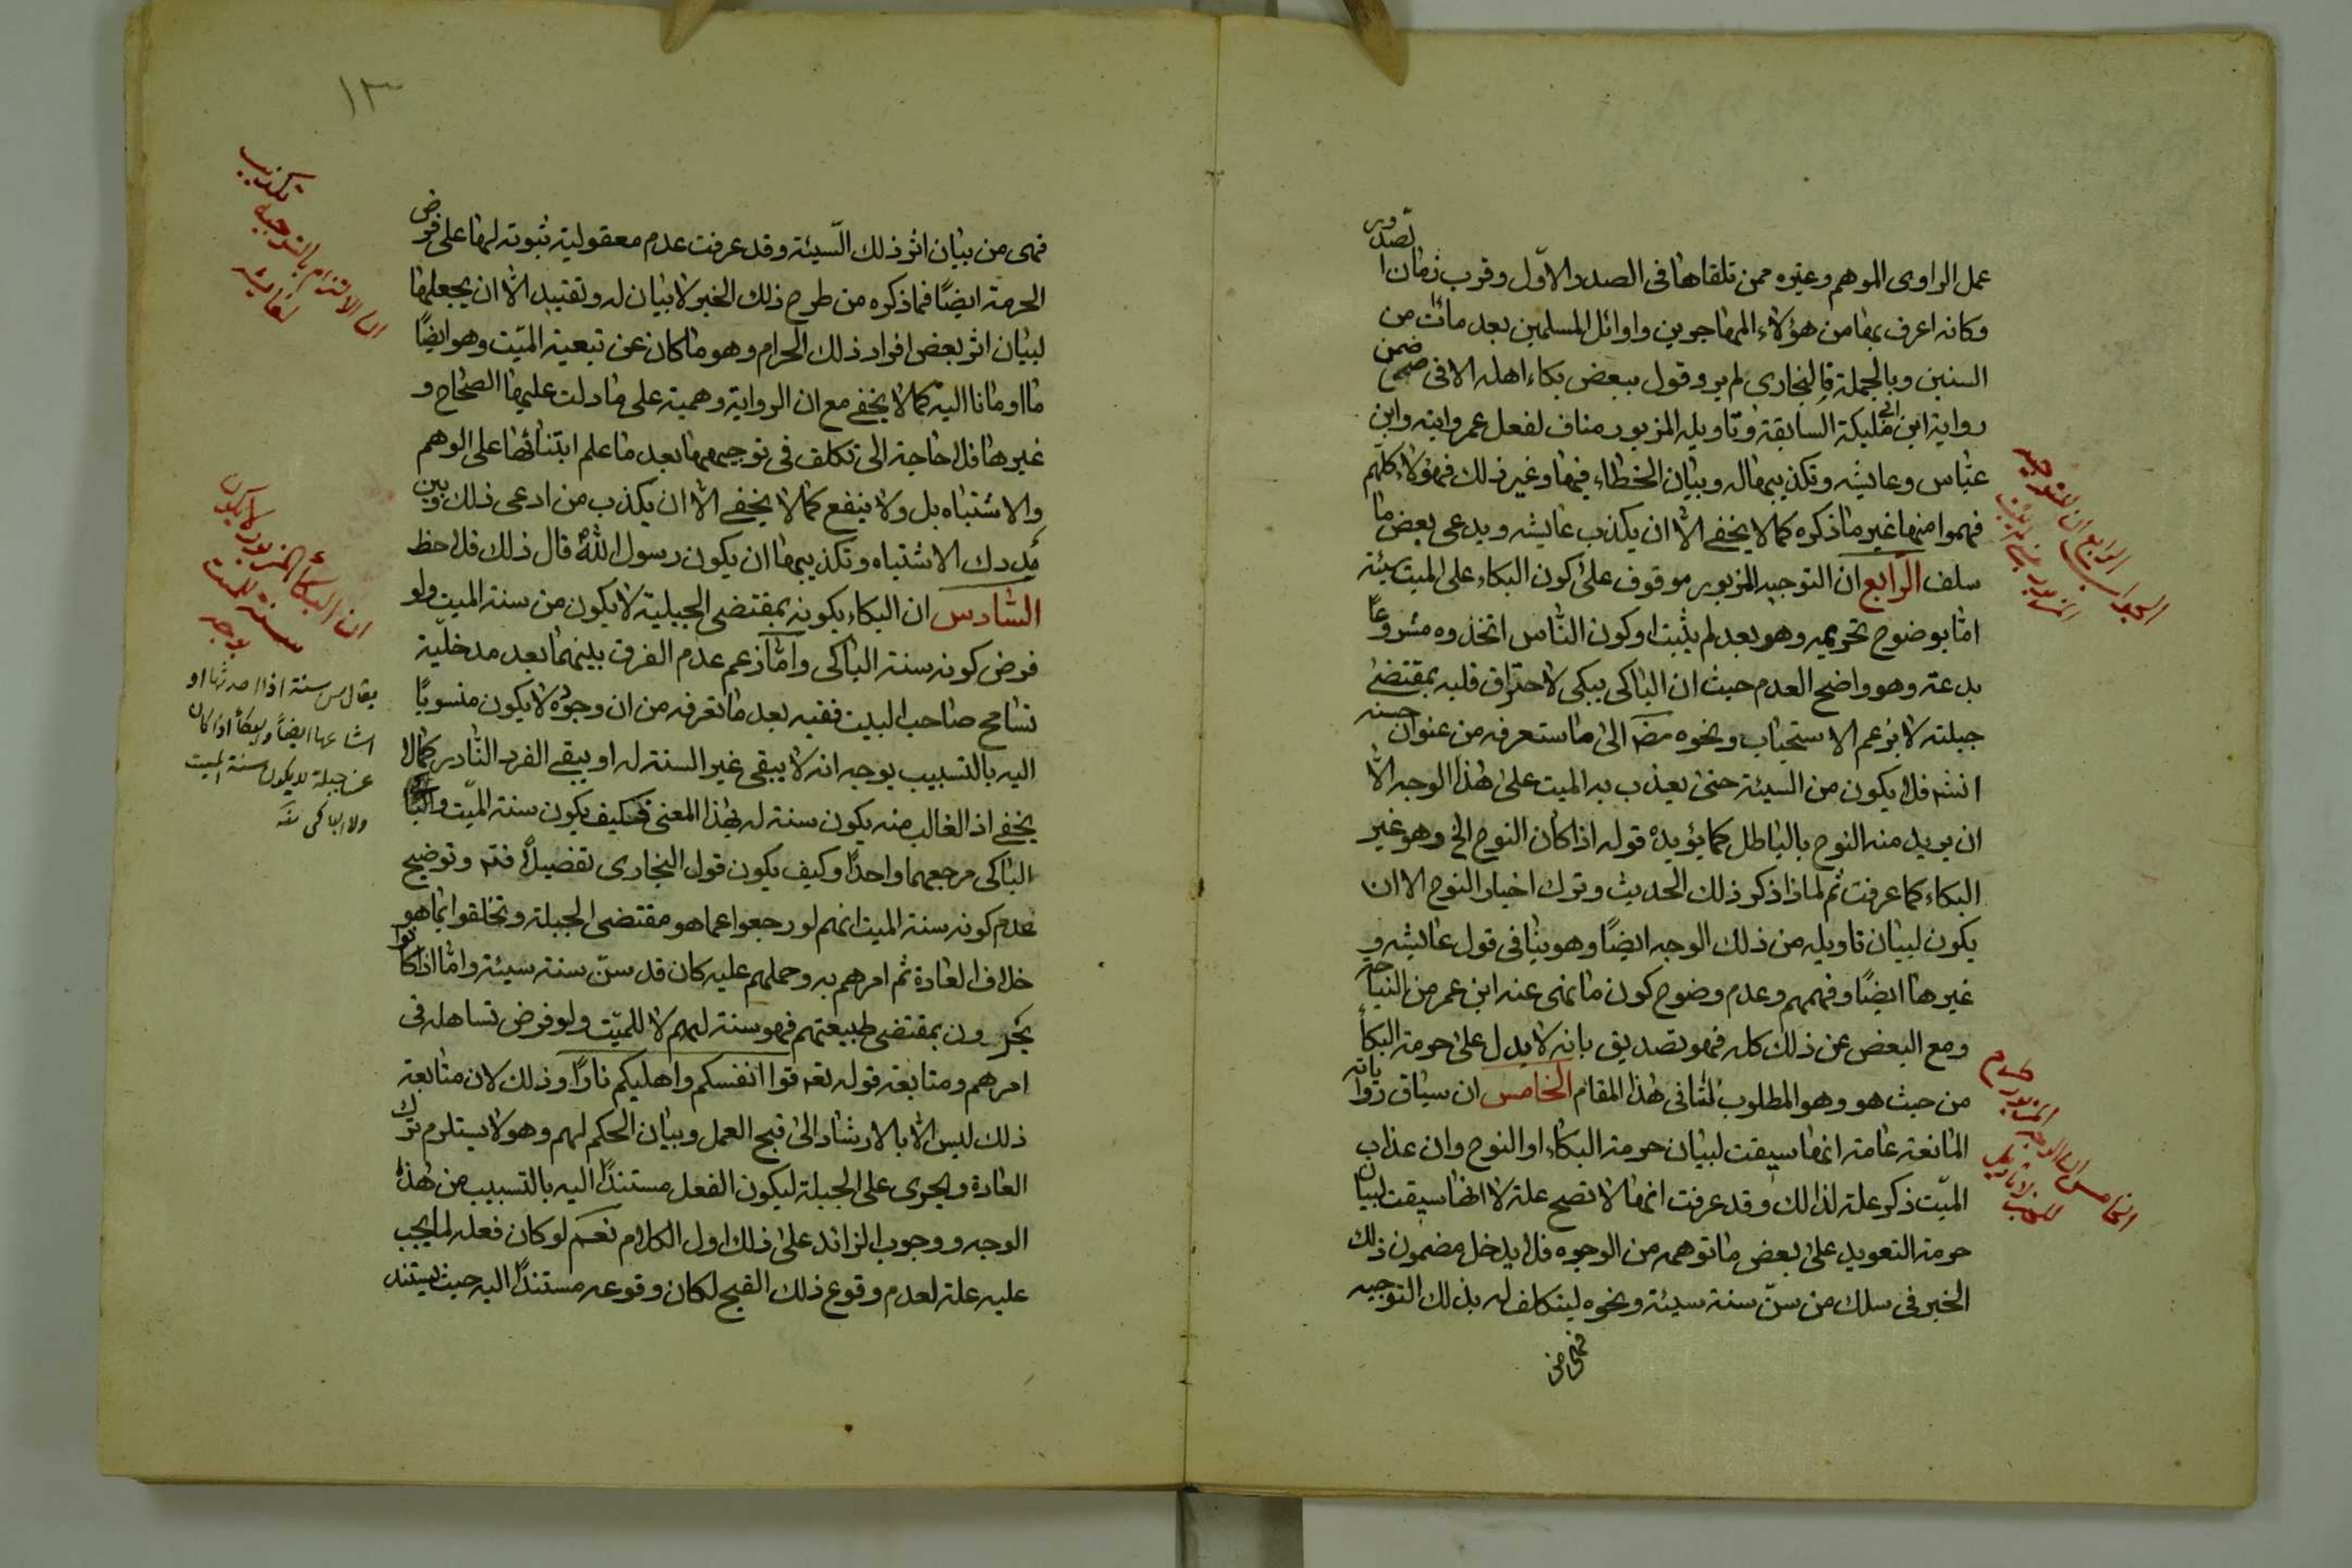 عمل الراوى الموهم وغيره ممن تلقاها فى الصدر الاوّل وقرب زمان
وكانه اعرف بها من هؤلاء المهاجرين واوائل المسلمين بعد مائت من
السنين وبالجملة فالبخارى لم يرو قول ببعض بكاء اهله الا فى ضمن
رواية ابن ابى مليكة السابقة وتاويله المزبور مناف لفعل عمر وابنه وابن
عبّاس وعايشه وتكذيبها له وبيان الخطاء فيها وغير ذلك فهؤلاء كلّهم
فهموا منها غير ما ذكره كما لا يخفى الّا ان يكذب عايشه ويدعى بعض ما
سلف الرّابع ان التوجيه المزبور موقوف على كون البكاء على الميت سيئة
امّا بوضوح تحريمه وهو بعد لم يثبت او كون النّاس اتخذوه مشروعًا
بدعة وهو واضح العدم حيث ان الباكى يبكى لاحتراق قلبه بمقتضى
جبلته لا بزعم الاستحباب ونحوه الى ما ستعرفه من عنوان حسنه
انشه فلا يكون من السيئة حتى يعذب به الميت على هذا الوجه الّا
ان يريد منه النوح بالباطل كما يؤيده قوله اذا كان النوح الخ وهو غير
البكاء كما عرفت ثم لماذا ذكر ذلك الحديث وترك اخبار النوح الا ان
يكون لبيان تاويله من ذلك الوجه ايضًا وهو ينافى قول عايشه و
غيرها ايضًا وفهمهم وعدم وضوح كون ما نهى عنه ابن عمر من النياحة
ومع البعض عن ذلك كله فهو تصديق بانه لا يدل على حرمة البكاء
من حيث هو وهو المطلوب لنا فى هذا المقام الخامس ان سياق رواياته
المانعة عامة انها سيقت لبيان حرمة البكاء او النوح وان عذاب
الميّت ذكر علة لذلك وقد عرفت انها لا تصح علة لا انها سيقت لبيان
حرمة التعويد على بعض ما توهمه من الوجوه فلا يدخل مضمون ذلك
الخبر فى سلك من سنّ سنة سيئة ونحوه ليتكلف له بذلك التوجيه
فهى من
الرابع ان التوجيه
المزبور
الخامس ان الوجه المزبور
١٣
فهى من بيان اثر ذلك السّيئة وقد عرفت عدم معقولية ثبوته لها على فرض
الحرمة ايضًا فما ذكره من طرح ذلك الخبر لا بيان له وتقييد الّا ان يجعلها
لبيان اثر بعض افراد ذلك الحرام وهو ما كان عن تبعية الميّت وهو ايضًا
ما اومانا اليه كما لا يخفى مع ان الرواية وهمية على ما دلت عليها الصحاح و
غيرها فلا حاجة الى تكلف فى توجيهها بعد ما علم ابتنائها على الوهم
والاشتباه بل ولا ينفع كما لا يخفى الّا ان يكذب من ادعى ذلك وبين
مدرك الاشتباه وتكذيبها ان يكون رسول الله قال ذلك فلاحظ
السّادس ان البكاء يكونه بمقتضى الجبلية لا يكون من سنة الميت ولو
فرض كونه سنة الباكى وامّا زعم عدم الفرق بينهما بعد مدخليّة
تسامح صاحب البيت ففيه بعد ما تعرفه من ان وجوده لا يكون منسوبًا
اليه بالتسبيب بوجه انه لا يبقى غير السنة له او يبقى الفرد النّادر كما لا
يخفى اذ الغالب منه يكون سنة له بهذا المعنى فكيف يكون سنة الميّت
الباكى مرجعهما واحدًا وكيف يكون قول البخارى تفصيلًا فتم وتوضيح
عدم كونه سنة الميت انهم لو رجعوا عما هو مقتضى الجبلة وتخلقوا بما هو
خلاف العادة ثم امرهم به وحملهم عليه كان قد سنّ سنة سيئة وامّا اذا كانوا
يجرون بمقتضى طبيعتهم فهو سنة لهم لا للميّت ولو فرض تساهله فى
امرهم ومتابعة قوله تعه قوا انفسكم واهليكم نارًا وذلك لان متابعة
ذلك ليس الّا بالارشاد الى قبح العمل وبيان الحكم لهم وهو لا يستلزم ترك
العادة والجرى على الجبلة ليكون الفعل مستندًا اليه بالتسبيب من هذه
الوجه ووجوب الزائد على ذلك اول الكلام نعم لو كان فعله لما يجب
عليه علة لعدم وقوع ذلك القبح لكان وقوعه مستندًا اليه حيث يستند
ان الالتزام بالتوجيه تكذيب
لعايشه
ان البكاء المزبور لا يكون
سنة للميت
بوجه
يقال سن سنة اذا احدثها او
اشاعها ايضًا والبكاء اذا كان
عن جبلة لا يكون سنة الميت
ولا الباكى